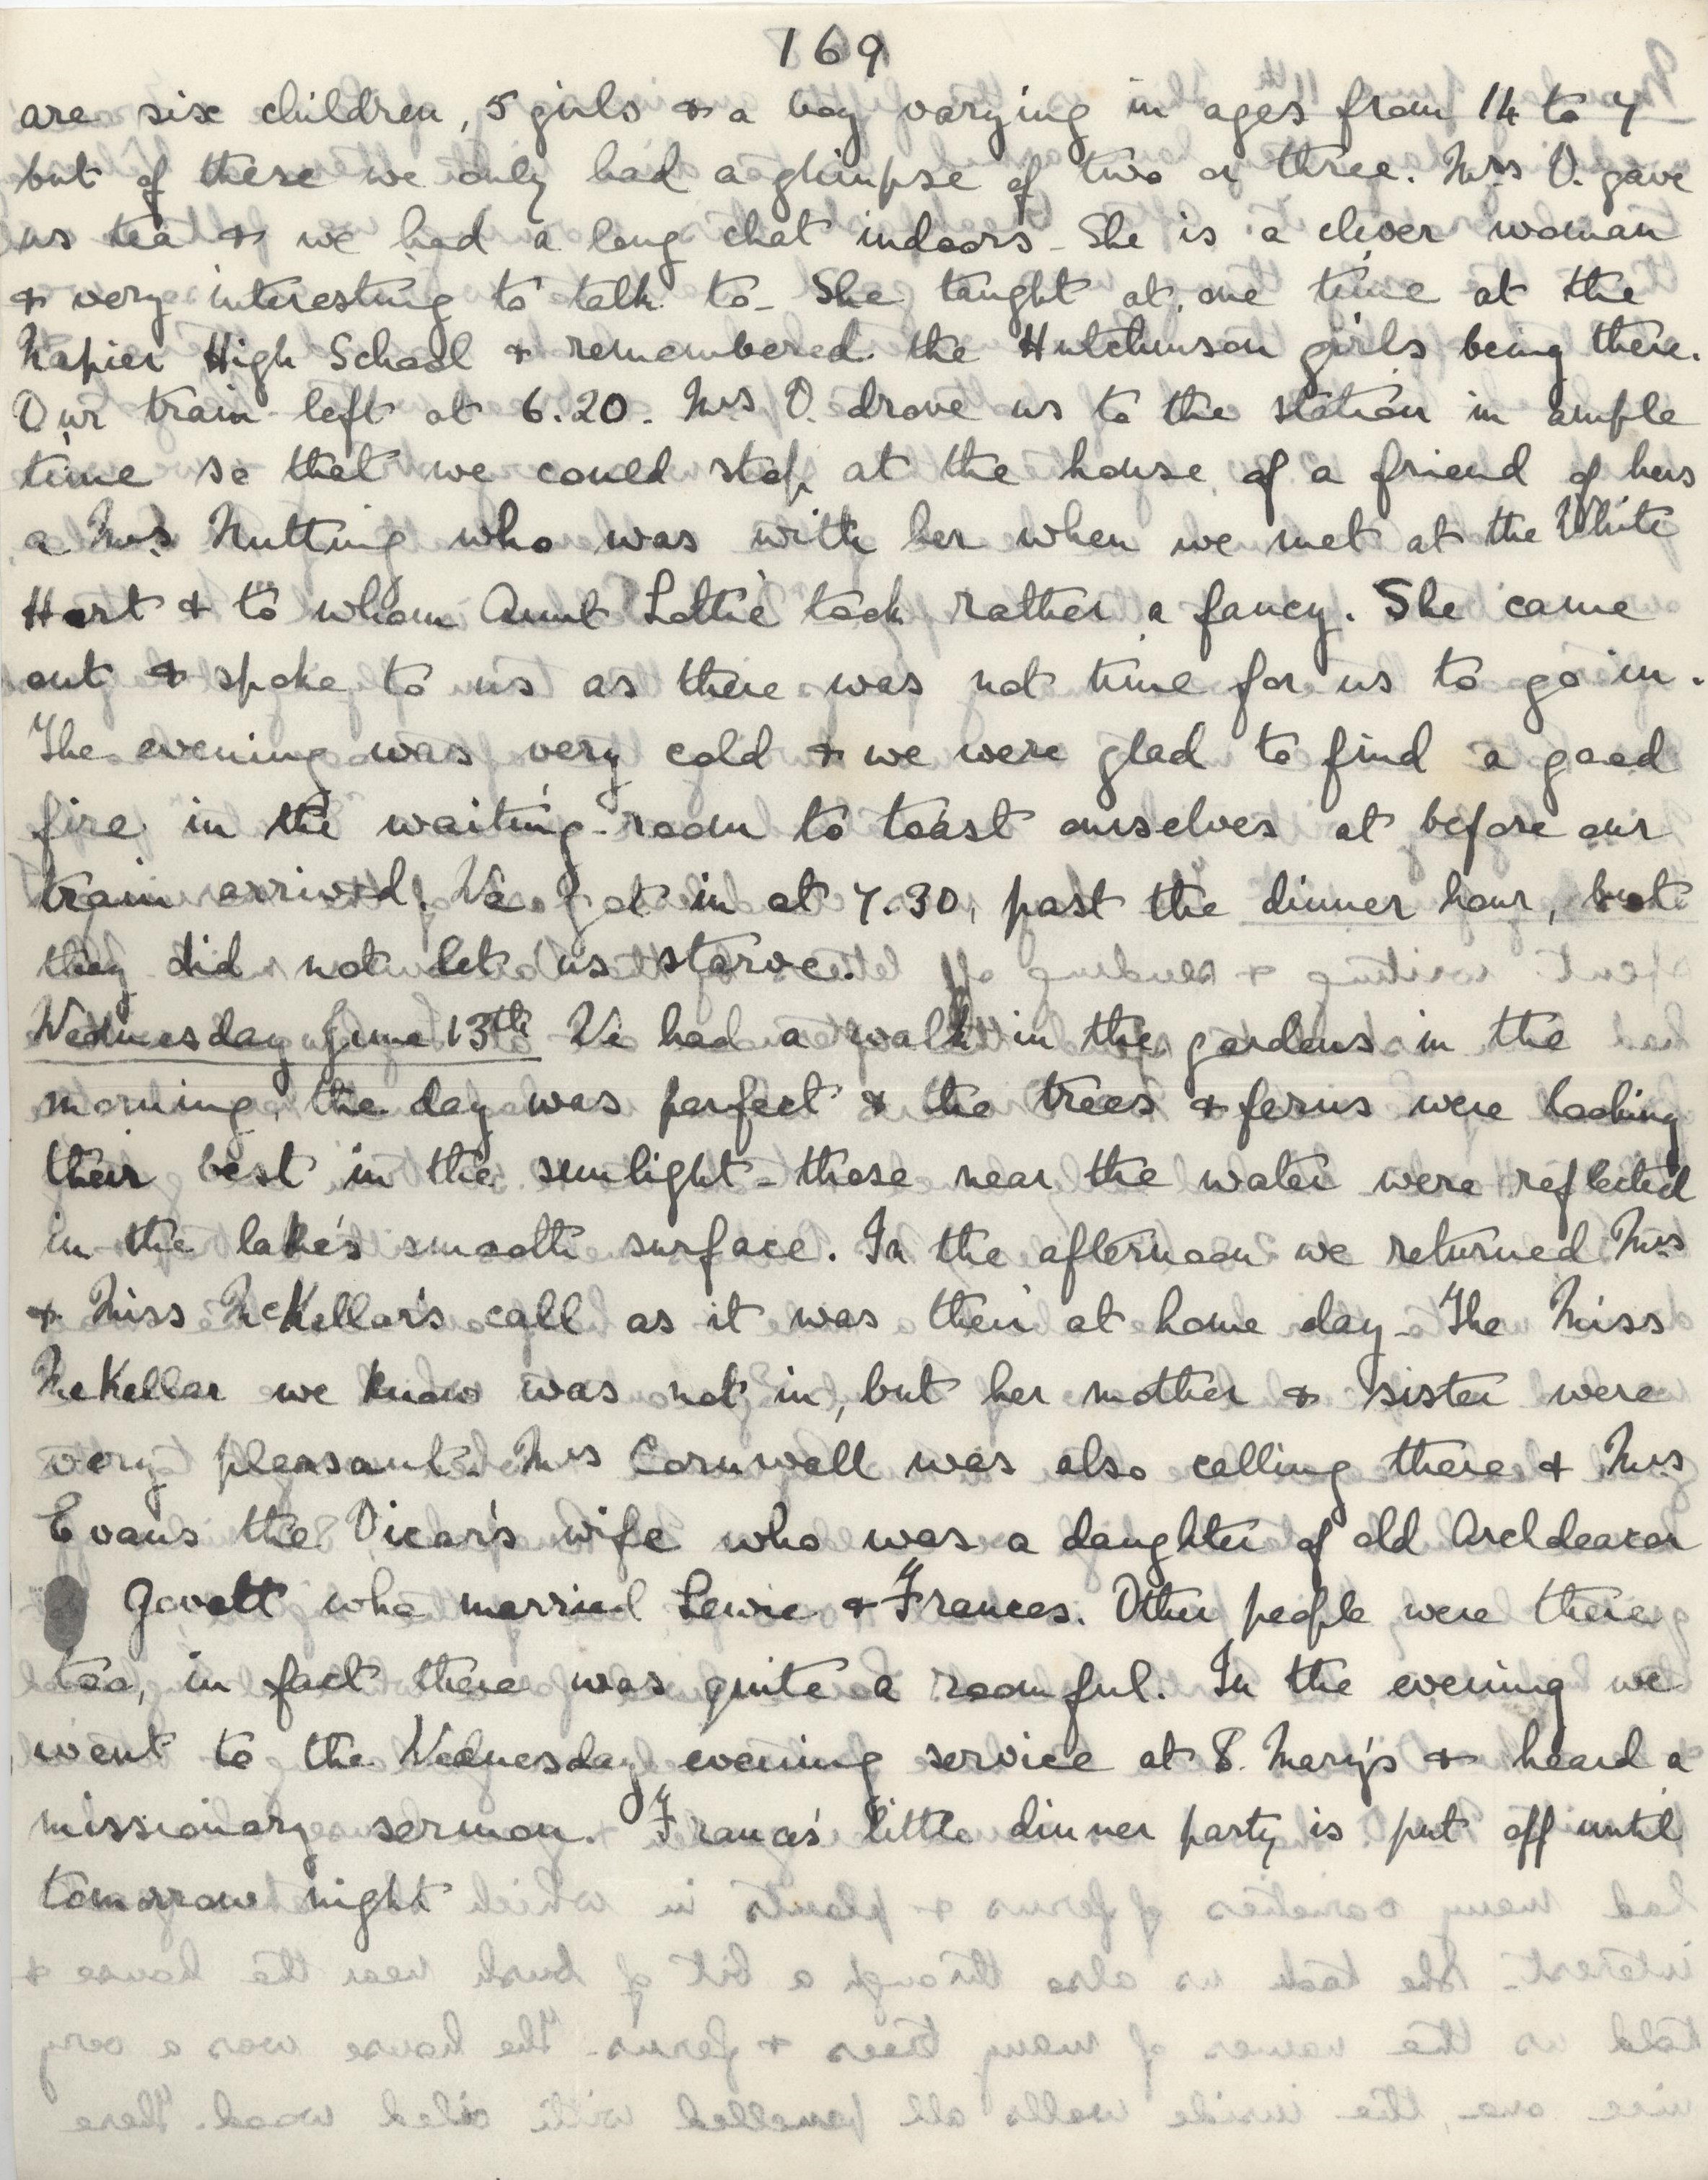 169
are six children, 5 girls & a boy varying in ages from 14 to 7
but of these we only had a glimpse of two or three. Mrs O. gave
us tea & we had a long chat indoors - She is a clever woman
& very interesting to talk to - She taught at one time at the
Napier High School & remembered the Hutchinson girls being there.
Our train left at 6.20. Mrs O. drove us to the station in ample
time so that we could stop at the house of a friend of hers
a Mrs Nutting who was with her when we met at the White
Hart & to whom Aunt Lottie took rather a fancy. She came
out & spoke to us as there was not time for us to go in.
The evening was very cold & we were glad to find a good
fire in the waiting-room to toast ourselves at before our
train arrived. We got in at 7.30, past the dinner hour, but
they did not let us starve.
Wednesday June 13th We had a walk in the gardens in the
morning, the day was perfect & the trees & ferns were looking
their best in the sunlight - those near the water were reflected
in the lake's smooth surface. In the afternoon we returned Mrs
& Miss McKellar's call as it was their at home day - The Miss
McKellar we know was not in, but her mother & sister were
very pleasant. Mrs Cornwall was also calling there & Mrs
Evans the Vicar's wife who was a daughter of old Archdeacon
Govett who married Lewie & Frances. Other people were there
too, in fact there was quite a roomful. In the evening we
went to the Wednesday evening service at S. Mary's & heard a
missionary sermon. Frances' little dinner party is put off until
tomorrow night